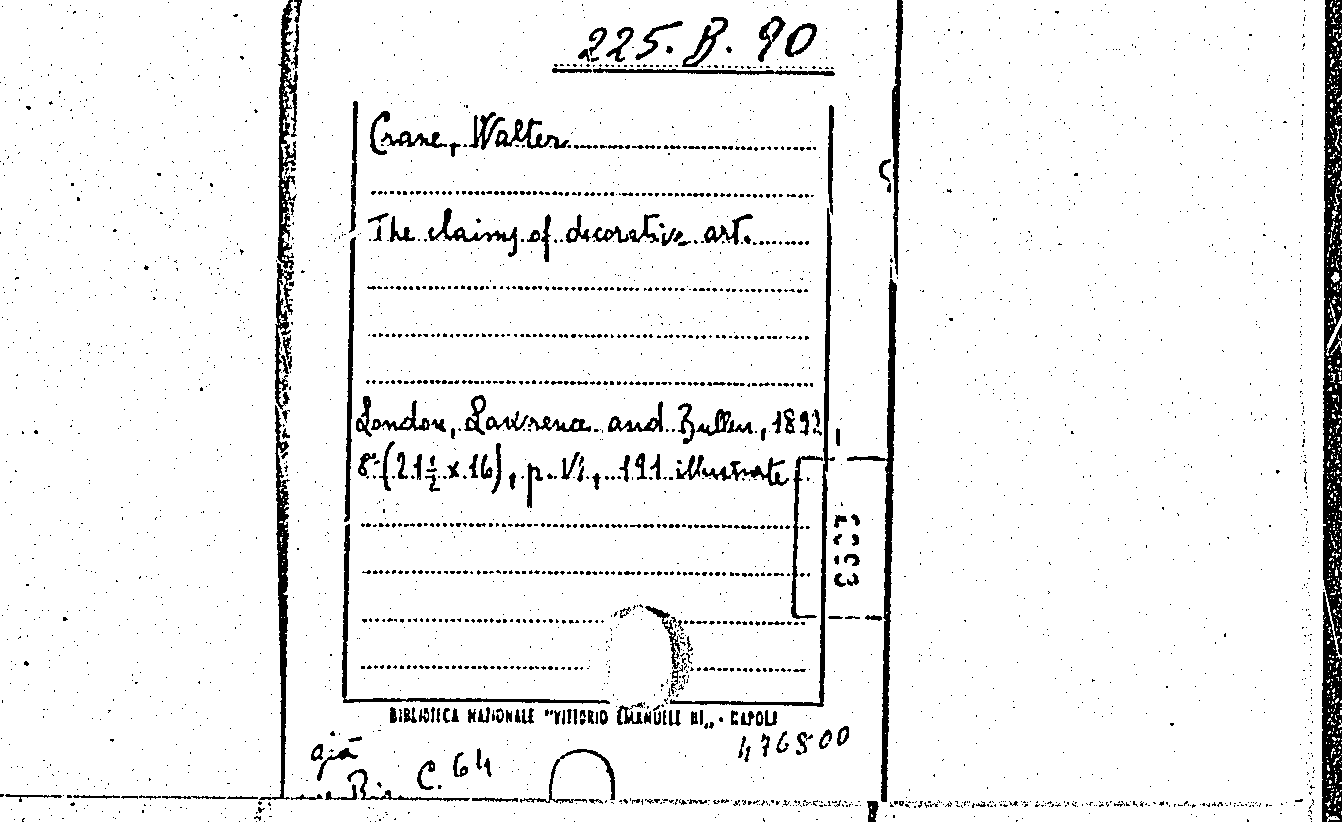 225. B. 90
Crane, Walter
The claims of decorative art.
London, Lawrence and Bullen, 1892
8° (21 ½ x 16), p. VI, 191 illustrate
BIBLIOTECA NAZIONALE "VITTORIO EMANUELE III„ - NAPOLI
476800
già
C. 64